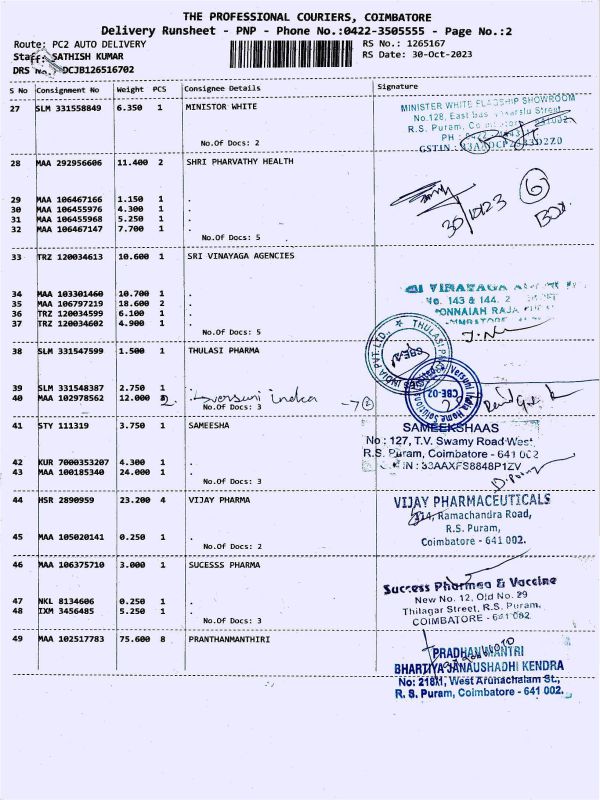 THE PROFESSIONAL COURIERS, COIMBATORE
Delivery Runsheet - PNP - Phone No.:0422-3505555 - Page No.:2
Route: PC2 AUTO DELIVERY RS No.: 1265167
Staff: SATHISH KUMAR RS Date: 30-Oct-2023
DRS No. DCJB126516702
S No Consignment No Weight PCS Consignee Details Signature
27 SLM 331558849 6.350 1 MINISTOR WHITE
MINISTER WHITE FLAGSHIP SHOWROOM
No.128, East
R.S. Puram,
No.Of Docs: 2
GSTIN
28 MAA 292956606 11.400 2 SHRI PHARVATHY HEALTH
29 MAA 106467166 1.150 1 .
30 MAA 106455976 4.300 1 .
31 MAA 106455968 5.250 1 .
32 MAA 106467147 7.700 1 .
No.Of Docs: 5
30/10/23 6 BOX
33 TRZ 120034613 10.600 1 SRI VINAYAGA AGENCIES
34 MAA 103301460 10.700 1 .
35 MAA 106797219 18.600 2 .
36 TRZ 120034599 6.100 1 .
37 TRZ 120034602 4.900 1 .
No.Of Docs: 5
VINAYAGA
No. 143 & 144.
PONNAIAH RAJA
38 SLM 331547599 1.500 1 THULASI PHARMA
39 SLM 331548387 2.750 1 .
40 MAA 102978562 12.000 2 . Versuni India
No.Of Docs: 3
CBE-02
41 STY 111319 3.750 1 SAMEESHA
42 KUR 7000353207 4.300 1 .
43 MAA 100185340 24.000 1 .
No.Of Docs: 3
SAMEEKSHAAS
No : 127, T.V. Swamy Road West,
R.S. Puram, Coimbatore - 641 002
33AAXFS8848P1ZV
44 HSR 2890959 23.200 4 VIJAY PHARMA
45 MAA 105020141 0.250 1 .
No.Of Docs: 2
VIJAY PHARMACEUTICALS
314, Ramachandra Road,
R.S. Puram,
Coimbatore - 641 002.
46 MAA 106375710 3.000 1 SUCESSS PHARMA
47 NKL 8134606 0.250 1 .
48 IXM 3456485 5.250 1 .
No.Of Docs: 3
Success Pharmea & Vaccine
New No. 12, Old No. 29
Thilagar Street, R.S. Puram,
COIMBATORE - 641 002.
49 MAA 102517783 75.600 8 PRANTHANMANTHIRI
PRADHAN MANTRI
BHARTIYA JANAUSHADHI KENDRA
No: 218/1, West Arunachalam St.,
R. S. Puram, Coimbatore - 641 002.